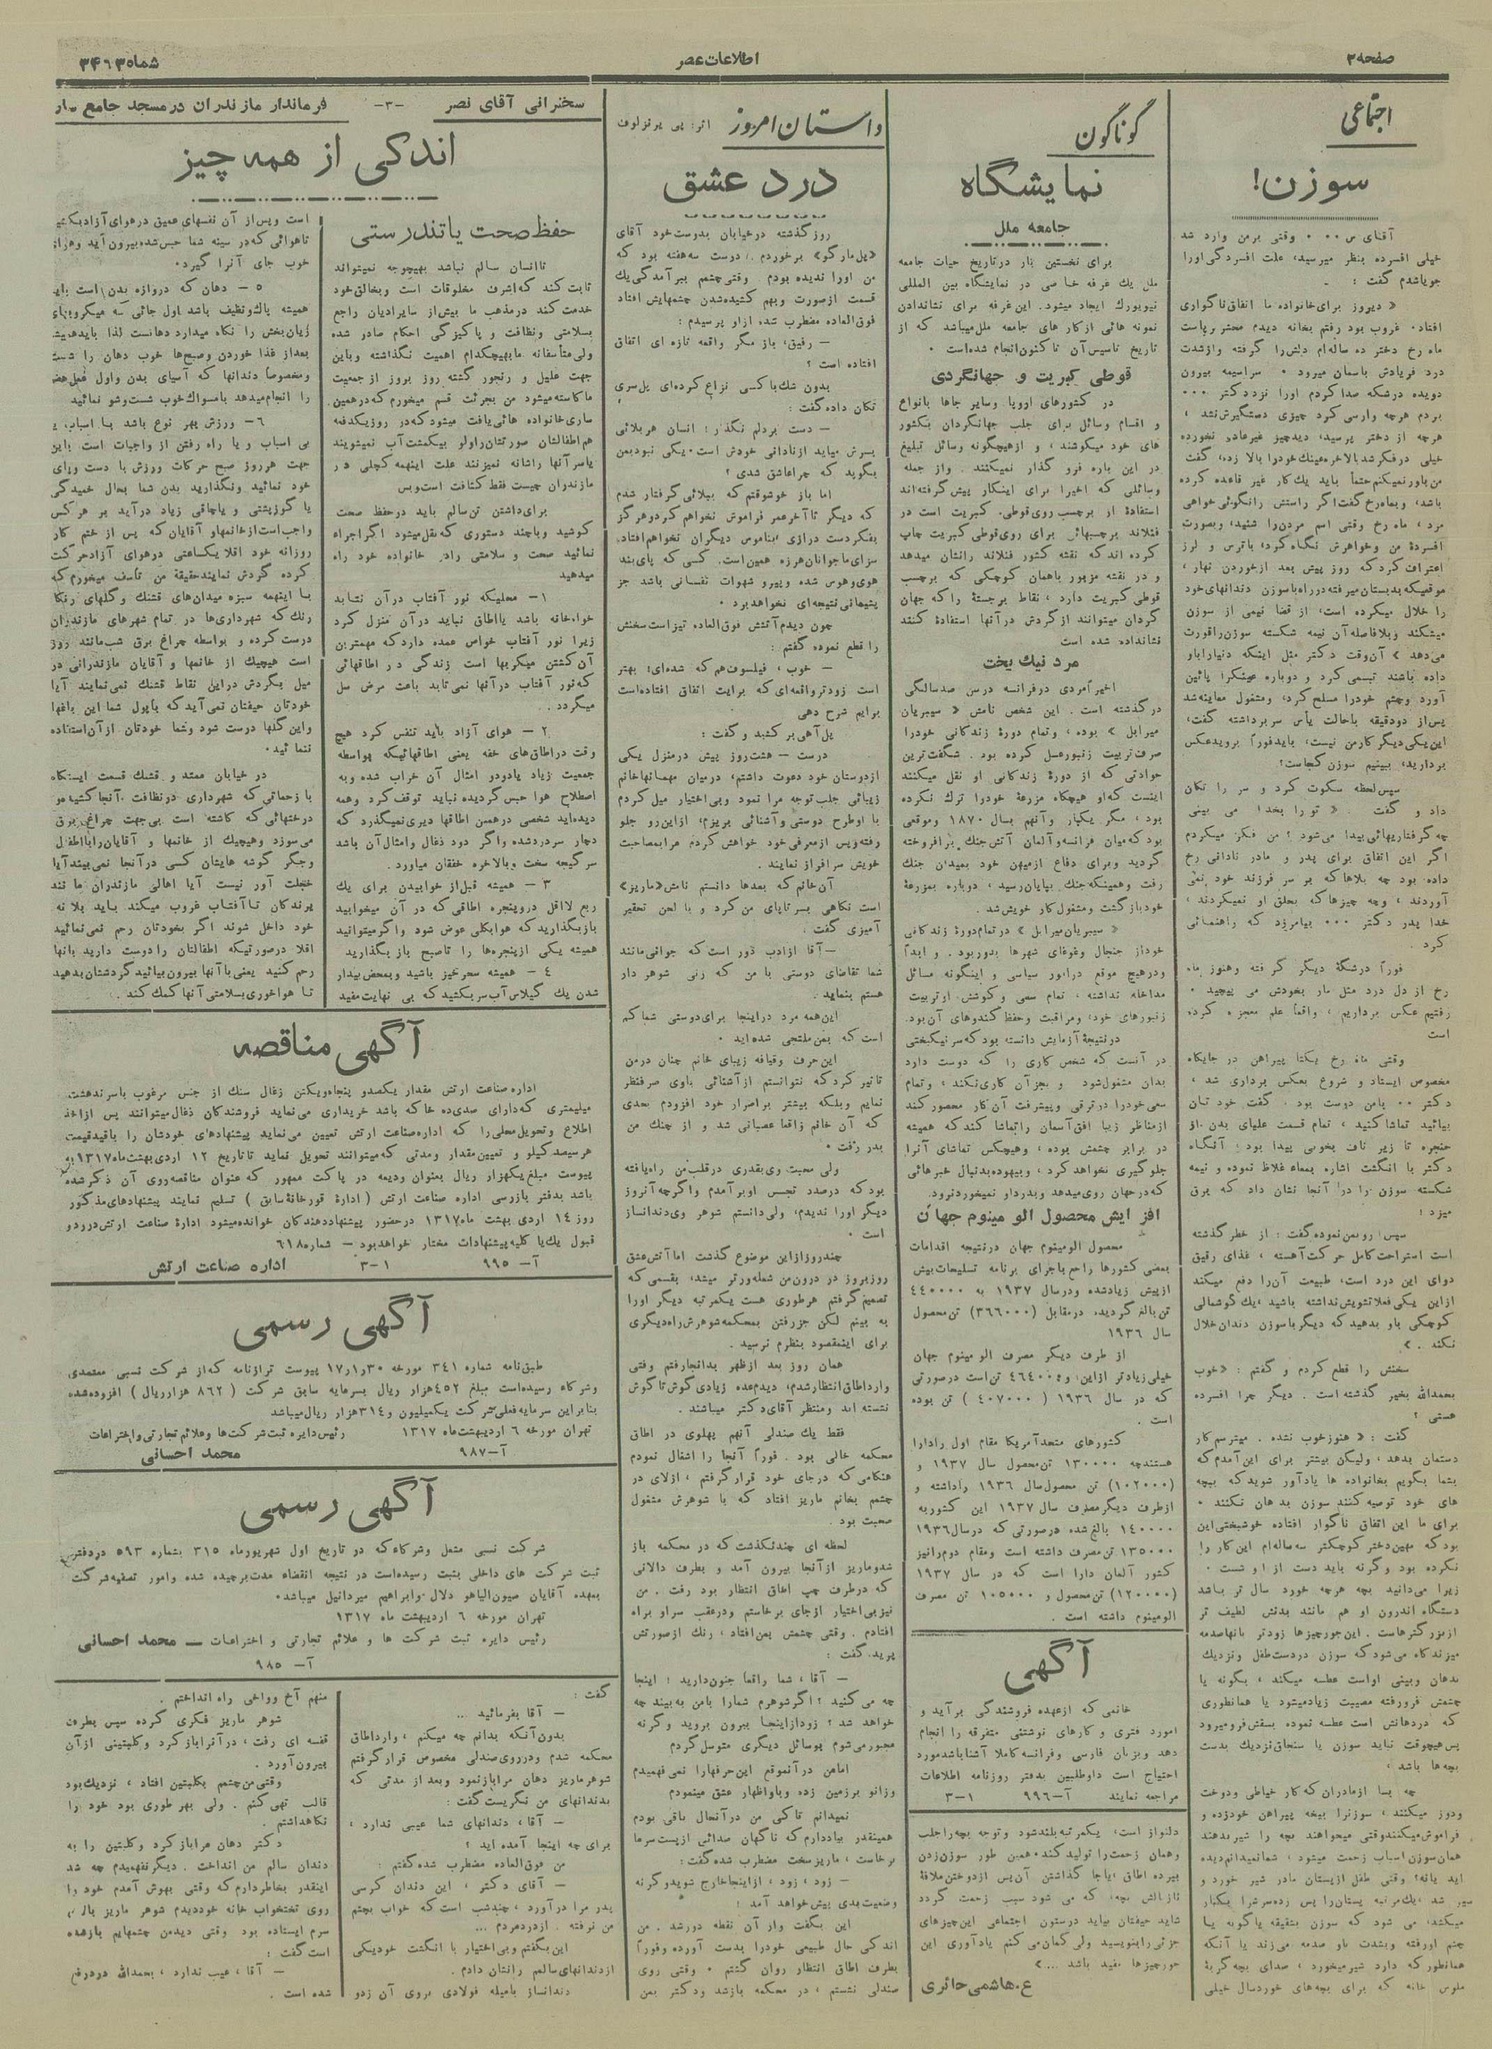 صفحه ۲
اطلاعات عصر
شماره ۳۴۶۳
اجتماعی
سوزن!
آقای س ۰۰ ۰ وقتی بر من وارد شد
خیلی افسرده بنظر میرسید، علت افسردگی اورا
جویا شدم گفت :
« دیروز برای خانواده ما اتفاق ناگواری
افتاد۰ غروب بود رفتم بخانه دیدم محشر بر پاست
ماه رخ دختر ده ساله‌ام دلش را گرفته و از شدت
درد فریادش بآسمان میرود ۰ سراسیمه بیرون
دویده درشکه صدا کردم اورا نزد دکتر ۰۰۰
بردم هرچه وارسی کرد چیزی دستگیرش نشد ،
هرچه از دختر پرسید، دید چیز غیر عادی نخورده
خیلی در فکر شد بالاخره عینک خودرا بالا زده، گفت
من باور نمیکنم حتماً باید یک کار غیر قاعده کرده
باشد، و بماه رخ گفت اگر راستش را نگوئی خواهی
مرد ، ماه رخ وقتی اسم مردن را شنید، و بصورت
افسردهٔ من و خواهرش نگاه کرد، با ترس و لرز
اعتراف کرد که روز پیش بعد از خوردن نهار ،
موقعیکه بدبستان میرفته در راه با سوزن دندانهای خود
را خلال میکرده است، از قضا نیمی از سوزن
میشکند و بلافاصله آن نیمه شکسته سوزن را قورت
می‌دهد » آن وقت دکتر مثل اینکه دنیا را باو
داده باشند تبسمی کرد و دوباره عینکرا پائین
آورد و چشم خودرا مسلح کرد، و مشغول معاینه شد
پس از دو دقیقه با حالت یأس سر برداشته گفت،
این یکی دیگر کار من نیست، باید فوراً بروید عکس
بردارید، ببینیم سوزن کجاست؟
سپس لحظه سکوت کرد و سر را تکان
داد و گفت . « تو را بخدا می بینی
چه گرفتاریهائی پیدا می‌شود ؟ من فکر میکردم
اگر این اتفاق برای پدر و مادر نادانی رخ
داده بود چه بلاها که بر سر فرزند خود نمی
آوردند ، و چه چیزها که بحلق او نمیکردند ،
خدا پدر دکتر ۰۰۰ بیامرزد که راهنمائی
کرد .
فوراً درشگهٔ دیگر گرفته و هنوز ماه
رخ از دل درد مثل مار بخودش می پیچید ۰
رفتیم عکس برداریم ، واقعاً علم معجزه کرده
است
وقتی ماه رخ یکتا پیراهن در جایگاه
مخصوص ایستاد و شروع بعکس برداری شد ،
دکتر ۰۰ بامن دوست بود . گفت خودتان
بیائید تماشا کنید ، تمام قسمت علیای بدن، از
حنجره تا زیر ناف بخوبی پیدا بود، آنگاه
دکتر با انگشت اشاره بمعاء غلاظ نموده و نیمه
شکسته سوزن را در آنجا نشان داد که برق
میزد ؛
سپس رو بمن نموده گفت : از خطر گذشته
است استراحت کامل حرکت آهسته ، غذای رقیق
دوای این درد است، طبیعت آن را دفع میکند
از این یکی فعلا تشویش نداشته باشید ، یک گوشمالی
کوچکی باو بدهید که دیگر با سوزن دندان خلال
نکند . »
سخنش را قطع کردم و گفتم : «خوب
بحمدالله بخیر گذشته است . دیگر چرا افسرده
هستی ؟
گفت : « هنوز خوب نشده . میترسم کار
دستمان بدهد ، ولیکن بیشتر برای این آمدم که
بشما بگویم بخانواده ها یادآور شوید که ببچه
های خود توصیه کنند سوزن بدهان نکنند ۰
برای ما این اتفاق ناگوار افتاده خوشبختی این
بود که مهین دختر کوچکتر سه ساله‌ام این کار را
نکرده بود وگرنه باید دست از او شست ۰
زیرا می‌دانید بچه هرچه خورد سال تر باشد
دستگاه اندرون او هم مانند بدنش لطیف تر
از بزرگترهاست . این جور چیزها زودتر بآنها صدمه
میزند گاه می‌شود که سوزن در دست طفل و نزدیک
بدهان و بینی او است عطسه میکند ، بگونه یا
چشمش فرو رفته مصیبت زیاد میشود یا همانطوری
که در دهانش است عطسه نموده بسقش فرو میرود
پس هیچوقت نباید سوزن یا سنجاق نزدیک بدست
بچه‌ها باشد ،
چه بسا از مادران که کار خیاطی و دوخت
و دوز میکنند ، سوزنرا ببخه پیراهن خود زده و
فراموش میکنند وقتی میخواهند بچه را شیر بدهند
همان سوزن اسباب زحمت میشود ، شما نمیدانم دیده
اید یا نه؟ وقتی طفل از پستان مادر شیر خورد و
سیر شد ، یک مرتبه پستان را پس زده سرش را یکبار
میکشد، می شود که سوزن بشقیقه یا گونه یا
چشم او رفته و بشدت باو صدمه می‌زند یا آنکه
همانطور که دارد شیر میخورد ، صدای بچه گربهٔ
ملوس خانه که برای بچه‌های خوردسال خیلی
گوناگون
نمایشگاه
جامعه ملل
برای نخستین بار در تاریخ حیات جامعه
ملل یک غرفه خاصی در نمایشگاه بین المللی
نیویورک ایجاد میشود. این غرفه برای نشاندادن
نمونه هائی از کارهای جامعه ملل میباشد که از
تاریخ تاسیس آن تاکنون انجام شده است ۰
قوطی کبریت و جهانگردی
در کشورهای اروپا و سایر جاها بانواع
و اقسام وسائل برای جلب جهانگردان بکشور
های خود میکوشند ، و از هیچگونه وسائل تبلیغ
در این باره فرو گذار نمیکنند . و از جمله
وسائلی که اخیرا برای اینکار پیش گرفته‌اند
استفادهٔ از برچسب روی قوطی، کبریت است در
فنلاند برچسبهائی برای روی قوطی کبریت چاپ
کرده اند که نقشه کشور فنلاند را نشان میدهد
و در نقشه مزبور باهمان کوچکی که برچسب
قوطی کبریت دارد ، نقاط برجستهٔ را که جهان
گردان میتوانند از گردش در آنها استفادهٔ کنند
نشانداده شده است
مرد نیک بخت
اخیراً مردی در فرانسه درس صد سالگی
در گذشته است . این شخص نامش « سیبریان
میرابل » بوده ، و تمام دورهٔ زندگانی خودرا
صرف تربیت زنبور عسل کرده بود . شگفت‌ترین
حوادثی که از دورهٔ زندگانی او نقل میکنند
اینست که او هیچگاه مزرعهٔ خودرا ترک نکرده
بود ، مگر یکبار و آنهم بسال ۱۸۷۰ و موقعی
بود که میان فرانسه و آلمان آتش جنگ برافروخته
گردید و برای دفاع از میهن خود بمیدان جنگ
رفت و همینکه جنگ بپایان رسید ، دوباره بمزرعهٔ
خود بازگشت و مشغول کار خویش شد .
« سیبریان میرابل » در تمام دورهٔ زندگانی
خود از جنجال و غوغای شهرها بدور بود . و ابداً
و در هیچ موقع در امور سیاسی و اینگونه مسائل
مداخله نداشته ، تمام سعی و کوشش او تربیت
زنبورهای خود، و مراقبت و حفظ کندوهای آن بود.
در نتیجهٔ آزمایش دانسته بود که سر نیکبختی
در آنست که شخص کاری را که دوست دارد
بدان مشغول شود و بجز آن کاری نکند ، و تمام
سعی خودرا در ترقی و پیشرفت آن کار محصور کند
از مناظر زیبا افق آسمان را تماشا کند که همیشه
در برابر چشمش بوده ، و هیچکس تماشای آنرا
جلوگیری نخواهد کرد ، و بیهوده بدنبال خبرهائی
که در جهان روی میدهد و بدرد او نمیخورد نرود.
افزایش محصول الومینوم جهان
محصول الومینوم جهان در نتیجه اقدامات
بعضی کشورها راجع باجرای برنامه تسلیحات بیش
از پیش زیاد شده و در سال ۱۹۳۷ به ۴۴۰۰۰۰
تن بالغ گردید، در مقابل (۳۶۶۰۰۰) تن محصول
سال ۱۹۳۶
از طرف دیگر مصرف الومینوم جهان
خیلی زیادتر از این، و ۴۶۴۰۰۰ تن است در صورتی
که در سال ۱۹۳۶ ( ۴۰۷۰۰۰ ) تن بوده
است .
کشورهای متحد آمریکا مقام اول را دارا
هستند چه ۱۳۰۰۰۰ تن محصول سال ۱۹۳۷ و
(۱۰۲۰۰۰) تن محصول سال ۱۹۳۶ را داشته و
از طرف دیگر مصرف سال ۱۹۳۷ این کشور به
۱۴۰۰۰۰ بالغ شده در صورتی که در سال ۱۹۳۶
۱۳۵۰۰۰ تن مصرف داشته است و مقام دوم را نیز
کشور آلمان دارا است که در سال ۱۹۳۷
(۱۲۰۰۰۰) تن محصول و ۱۰۵۰۰۰ تن مصرف
الومینوم داشته است .
آگهی
خانمی که از عهده فروشندگی برآید و
امور دفتری و کارهای نوشتنی متفرقه را انجام
دهد و بزبان فارسی و فرانسه کاملا آشنا باشد مورد
احتیاج است داوطلبین بدفتر روزنامه اطلاعات
مراجعه نمایند آ–۹۹۶ ۳–۱
دلنواز است، یکمرتبه بلند شود و توجه بچه را جلب
و همان زحمت را تولید کند ، همین طور سوزن زدن
بپرده اطاق ، یا جا گذاشتن آن پس از دوختن ملافهٔ
ناز بالش بچه که می شود سبب زحمت گردد
شاید حیفتان بیاید در ستون اجتماعی این چیزهای
جزئی را بنویسید ولی گمان می کنم یادآوری این
جور چیزها مفید باشد ... »
ع.هاشمی حائری
داستان امروز
اثر: پی یر نزلوف
درد عشق
روز گذشته در خیابان بدوست خود آقای
«پل مارگو» برخوردم . دوست سه هفته بود که
من اورا ندیده بودم وقتی چشمم ببرآمدگی یک
قسمت از صورت و بهم کشیده شدن چشمهایش افتاد
فوق العاده مضطرب شده، از او پرسیدم :
— رفیق، باز مگر واقعه تازه ای اتفاق
افتاده است ؟
بدون شک با کسی نزاع کرده‌ای پل سری
تکان داده گفت :
— دست بردلم نگذار ؛ انسان هر بلائی
بسرش میاید از نادانی خودش است ، یکی نبود بمن
بگوید که چرا عاشق شدی ؟
اما باز خوشوقتم که ببلائی گرفتار شدم
که دیگر تا آخر عمر فراموش نخواهم کرد و هرگز
بفکر دست درازی بناموس دیگران نخواهم افتاد،
سزای ما جوانان هرزه همین است. کسی که پای بند
هوی و هوس شده و پیرو شهوات نفسانی باشد جز
پشیمانی نتیجه‌ای نخواهد برد ۰
چون دیدم آتشش فوق العاده تیز است سخنش
را قطع نموده گفتم :
— خوب ، فیلسوف هم که شده‌ای، بهتر
است زودتر واقعه‌ای که برایت اتفاق افتاده است
برایم شرح دهی .
پل آهی بر کشید و گفت :
درست — هشت روز پیش در منزل یکی
از دوستان خود دعوت داشتم، در میان مهمانها خانم
زیبائی جلب توجه مرا نمود و بی اختیار میل کردم
با او طرح دوستی و آشنائی بریزم، از این رو جلو
رفته و پس از معرفی خود خواهش کردم مرا بمصاحبت
خویش سرافراز نمایند.
آن خانم که بعدها دانستم نامش «ماریز»
است نگاهی بسر تا پای من کرد و با لحن تحقیر
آمیزی گفت .
— آقا از ادب دور است که جوانی مانند
شما تقاضای دوستی با من که زنی شوهر دار
هستم بنماید .
این همه مرد در اینجا برای دوستی شما کم
است که بمن ملتجی شده اید ۰
این حرف و قیافه زیبای خانم چنان در من
تأثیر کرد که نتوانستم از آشنائی باوی صرفنظر
نمایم و بلکه بیشتر بر اصرار خود افزودم بحدی
که آن خانم واقعا عصبانی شد و از چنگ من
بدر رفت ۰
ولی محبت وی بقدری در قلب من راه یافته
بود که در صدد تجسس او بر آمدم و اگر چه آنروز
دیگر اورا ندیدم، ولی دانستم شوهر وی دندانساز
است ۰
چند روز از این موضوع گذشت اما آتش عشق
روز بروز در درون من شعله ور تر میشد، بقسمی که
تصمیم گرفتم هر طوری هست یکمرتبه دیگر اورا
به بینم لکن جز رفتن بمحکمه شوهرش راه دیگری
برای اینمقصود بنظرم نرسید .
همان روز بعد از ظهر بدانجا رفتم وقتی
وارد اطاق انتظار شدم، دیدم عده زیادی گوش تا گوش
نشسته اند و منتظر آقای دکتر میباشند .
فقط یک صندلی آنهم پهلوی در اطاق
محکمه خالی بود . فوراً آنجا را اشغال نمودم
هنگامی که در جای خود قرار گرفتم ، از لای در
چشمم بخانم ماریز افتاد که با شوهرش مشغول
صحبت بود .
لحظه ای چند نگذشت که در محکمه باز
شد و ماریز از آنجا بیرون آمد و بطرف دالانی
که در طرف چپ اطاق انتظار بود رفت ، من
نیز بی اختیار از جای برخاستم و در عقب سر او براه
افتادم . وقتی چشمش بمن افتاد ، رنگ از صورتش
پرید، گفت :
— آقا ، شما واقعا جنون دارید ؛ اینجا
چه می کنید ؟ اگر شوهرم شمارا بامن به بیند چه
خواهد شد ؟ زود از اینجا بیرون بروید و گرنه
مجبور می‌شوم بوسائل دیگری متوسل گردم
اما من در آنموقع این حرفها را نمی فهمیدم
و زانو برزمین زده و باو اظهار عشق مینمودم
نمیدانم تا کی من در آنحال باقی بودم
همینقدر بیاد دارم که ناگهان صدائی از پشت سرما
برخاست ، ماریز سخت مضطرب شده گفت :
— زود ، زود ، از اینجا خارج شوید و گرنه
وضعیت بدی پیش خواهد آمد :
این بگفت و از آن نقطه دور شد . من
اندکی حال طبیعی خودرا بدست آورده و فوراً
بطرف اطاق انتظار روان گشتم ۰ وقتی روی
صندلی نشستم ، در محکمه باز شد و دکتر بمن
گفت :
— آقا بفرمائید ...
بدون آنکه بدانم چه میکنم ، وارد اطاق
محکمه شدم و در روی صندلی مخصوص قرار گرفتم
شوهر ماریز دهان مرا باز نمود و بعد از مدتی که
بدندانهای من نگریست گفت :
— آقا ، دندانهای شما عیبی ندارد ،
برای چه اینجا آمده اید ؟
من فوق العاده مضطرب شده گفتم :
— آقای دکتر ، این دندان کرسی
پدر مرا در آورد ، چند شب است که خواب بچشم
من نرفته . از درد مردم ...
این بگفتم و بی اختیار با انگشت خود یکی
از دندانهای سالمم را نشان دادم .
دندانساز با میله فولادی بروی آن زد و
منهم آخ و واخی راه انداختم .
شوهر ماریز فکری کرده سپس بطرف
قفسه ای رفت ، در آنرا باز کرد و کلبتینی از آن
بیرون آورد .
وقتی من چشمم بکلبتین افتاد ، نزدیک بود
قالب تهی کنم . ولی بهر طوری بود خود را
نگاهداشتم .
دکتر دهان مرا باز کرد و کلبتین را به
دندان سالم من انداخت . دیگر نفهمیدم چه شد
اینقدر بخاطر دارم که وقتی بهوش آمدم خود را
روی تختخواب خانه خود دیدم شوهر ماریز بالای
سرم ایستاده بود وقتی دیدمن چشمهایم باز شده
است گفت :
— آقا ، عیب ندارد ، بحمدالله درد رفع
شده است .
سخنرانی آقای نصر
–۳–
فرماندار مازندران در مسجد جامع
اندکی از همه چیز
حفظ صحت یا تندرستی
تا انسان سالم نباشد بهیچوجه نمیتواند
ثابت کند که اشرف مخلوقات است و بخالق خود
خدمت کند در مذهب ما بیش از سایر ادیان راجع
بسلامتی و نظافت و پاکیزگی احکام صادر شده
ولی متأسفانه ما بهیچکدام اهمیت نگذاشته و باین
جهت علیل و رنجور گشته روز بروز از جمعیت
ما کاسته میشود من بجرئت قسم میخورم که در همین
ساری خانواده هائی یافت میشود که در روز یکدفعه
هم اطفالشان صورتشان را ولو بیکمشت آب نمیشویند
یا سر آنها را شانه نمیزنند علت اینهمه کچلی در
مازندران چیست فقط کثافت است و بس
برای داشتن تن سالم باید در حفظ صحت
کوشید و باچند دستوری که نقل میشود اگر اجراء
نمائید صحت و سلامتی را در خانواده خود راه
میدهید
۱– محلیکه نور آفتاب در آن نتابد
خوابخانه باشد یا اطاق نباید در آن منزل کرد
زیرا نور آفتاب خواص عمده دارد که مهمترین
آن کشتن میکربها است زندگی در اطاقهائی
که نور آفتاب در آنها نمی تابد باعث مرض سل
میگردد .
۲ – هوای آزاد باید تنفس کرد هیچ
وقت در اطاق های خفه یعنی اطاقهائیکه بواسطه
جمعیت زیاد یا دود و امثال آن خراب شده و به
اصطلاح هوا حبس گردیده نباید توقف کرد و همه
دیده‌اید شخصی در همین اطاقها دیری نمیگذرد که
دچار سردرد شده و اگر دود ذغال و امثال آن باشد
سرگیجه سخت و بالاخره خفقان میاورد.
۳ – همیشه قبل از خوابیدن برای یک
ربع لااقل در و پنجره اطاقی که در آن میخوابید
باز بگذارید که هوا بکلی عوض شود و اگر میتوانید
همیشه یکی از پنجره‌ها را تا صبح باز بگذارید
۴ – همیشه سحر خیز باشید و بمحض بیدار
شدن یک گیلاس آب سر بکشید که بی نهایت مفید
است و پس از آن نفسهای عمیق در هوای آزاد بکشید
تا هوائی که در سینه شما حبس شده بیرون آید و هوای
خوب جای آنرا گیرد۰
۵ – دهان که دروازه بدن است باید
همیشه پاک و نظیف باشد اول جائی که میکروبهای
زیان بخش را نگاه میدارد دهانست لذا باید همیشه
بعد از غذا خوردن و صبح ها خوب دهان را شست
و مخصوصا دندانها که آسیای بدن و اول عمل هضم
را انجام میدهد با مسواک خوب شست و شو نمائید
۶– ورزش بهر نوع باشد با اسباب یا
بی اسباب و یا راه رفتن از واجبات است باین
جهت هر روز صبح حرکات ورزش با دست و پای
خود نمائید و نگذارید بدن شما بحال خمیدگی
یا گوژپشتی و یا چاقی زیاد در آید بر هر کس
واجب است از خانمها و آقایان که پس از ختم کار
روزانه خود اقلا یکساعتی در هوای آزاد حرکت
کرده گردش نمایند حقیقة من تأسف میخورم که
با اینهمه سبزه میدان‌های قشنگ و گلهای رنگا
رنگ که شهرداری‌ها در تمام شهرهای مازندران
درست کرده و بواسطه چراغ برق شب مانند روز
است هیچیک از خانمها و آقایان مازندرانی در
میل بگردش در این نقاط قشنگ نمی نمایند آیا
خودتان حیفتان نمی آید که با پول شما این باغها
و این گلها درست شود و شما خودتان از آن استفاده
ننمائید۰
در خیابان ممتد و قشنگ قسمت ایستگاه
با زحماتی که شهرداری در نظافت آنجا کشیده و
درختهائی که کاشته است بی‌جهت چراغ برق
می‌سوزد و هیچیک از خانمها و آقایان را با اطفال
و جگر گوشه هایشان کسی در آنجا نمی بیند آیا
خجلت آور نیست آیا اهالی مازندران مانند
پرندگان تا آفتاب غروب میکند باید بلانه
خود داخل شوند اگر بخودتان رحم نمی‌نمائید
اقلا در صورتیکه اطفالتان را دوست دارید بآنها
رحم کنید یعنی با آنها بیرون بیائید گردششان بدهید
تا هوا خوری بسلامتی آنها کمک کند.
آگهی مناقصه
اداره صناعت ارتش مقدار یکصد و پنجاه و یکتن زغال سنگ از جنس مرغوب باسرند هشت
میلیمتری که دارای صدی ده خاکه باشد خریداری می‌نماید فروشندگان ذغال میتوانند پس از اخذ
اطلاع و تحویل محلی را که اداره صناعت ارتش تعیین می‌نماید پیشنهادهای خودشان را باقید قیمت
هر سیصد کیلو و تعیین مقدار و مدتی که میتوانند تحویل نمایند تا تاریخ ۱۲ اردیبهشت ماه ۱۳۱۷ به
پیوست مبلغ یکهزار ریال بعنوان ودیعه در پاکت ممهور که عنوان مناقصه روی آن ذکر شده
باشد بدفتر بازرسی اداره صناعت ارتش ( ادارهٔ قورخانهٔ سابق ) تسلیم نمایند پیشنهادهای مذکور
روز ۱۴ اردی بهشت ماه ۱۳۱۷ در حضور پیشنهاد دهندگان خوانده میشود ادارهٔ صناعت ارتش در رد و
قبول یک یا کلیه پیشنهادات مختار خواهد بود — شماره ۶۱۸
آ– ۹۹۵ ۳–۱ اداره صناعت ارتش
آگهی رسمی
طبق نامه شماره ۳۴۱ مورخه ۳۰ر۱ر۱۷ پیوست ترازنامه که از شرکت نسبی معتمدی
و شرکاء رسیده است مبلغ ۴۵۲ هزار ریال بسرمایه سابق شرکت ( ۸۶۲ هزار ریال ) افزوده شده
بنابراین سرمایه فعلی شرکت یکمیلیون و ۳۱۴ هزار ریال میباشد
تهران مورخه ۶ اردیبهشت ماه ۱۳۱۷ رئیس دایره ثبت شرکت ها و علائم تجارتی و اختراعات
آ–۹۸۷ محمد احسانی
آگهی رسمی
شرکت نسبی مشعل و شرکاء که در تاریخ اول شهریور ماه ۳۱۵ بشماره ۵۹۳ در دفتر
ثبت شرکت های داخلی بثبت رسیده است در نتیجه انقضاء مدت برچیده شده و امور تصفیه شرکت
بعهده آقایان صیون الیاهو دلال و ابراهیم مردانیل میباشد۰
تهران مورخه ۶ اردیبهشت ماه ۱۳۱۷
رئیس دایره ثبت شرکت ها و علائم تجارتی و اختراعات — محمد احسانی
آ– ۹۸۵